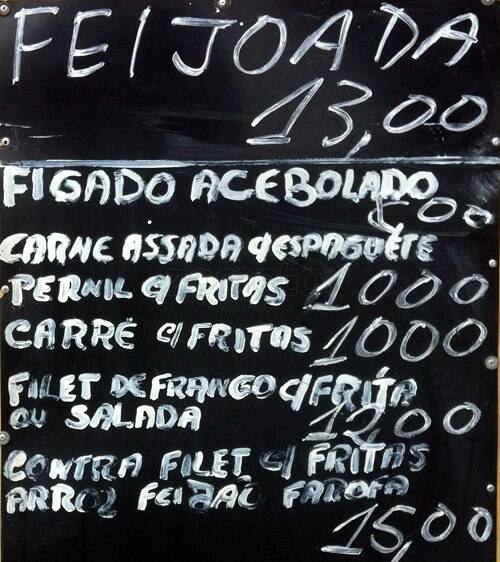 FEIJOADA
13,00
FIGADO ACEBOLADO
00
CARNE ASSADA C/ESPAGUETE
PERNIL C/FRITAS 1000
CARRÉ C/FRITAS 1000
FILET DE FRANGO C/FRITA
OU SALADA 1200
CONTRA FILET C/ FRITAS
ARROZ FEIJAO FAROFA
15,00